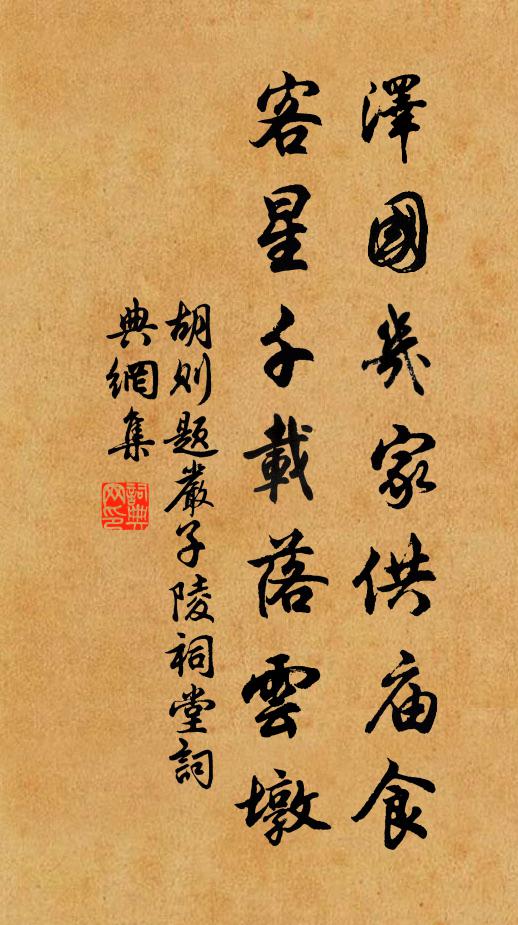 澤國幾家供庙食
客星千載落雲墩
胡則題嚴子陵祠堂詞
典網集
詞典網印